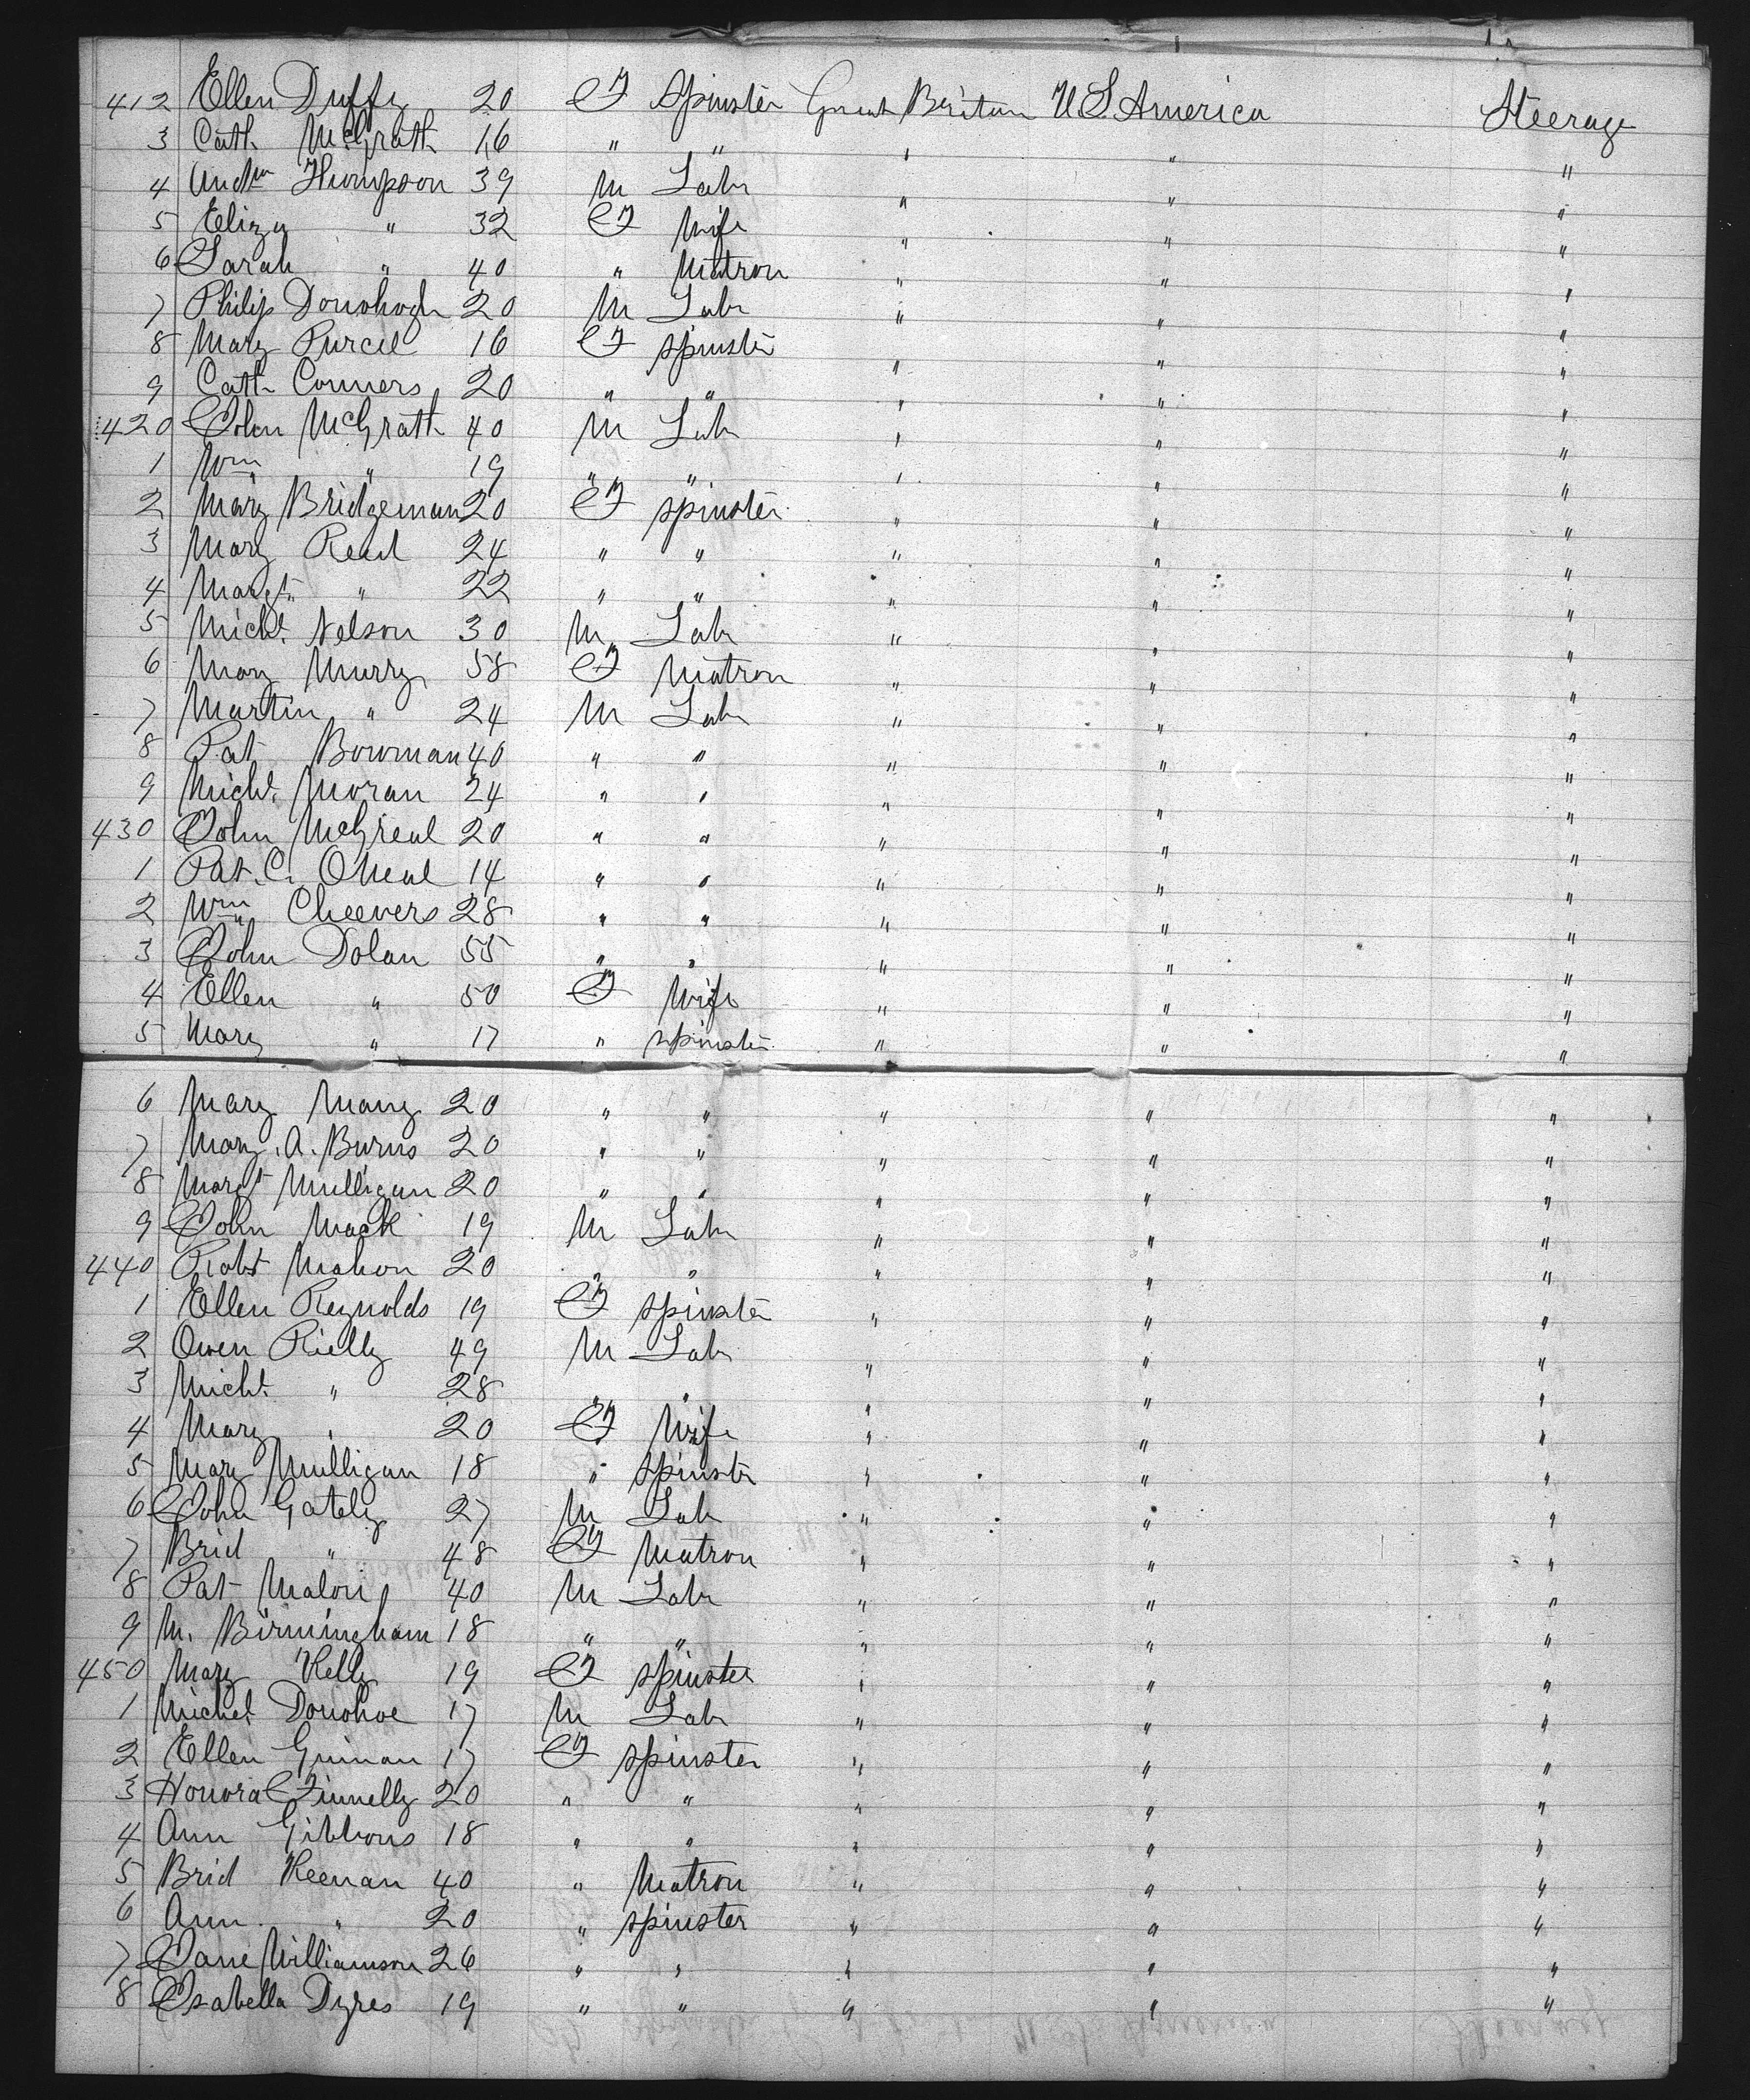 412 Ellen Duffy 20 F Spinster Great Britain U S America Steerage
3 Cath McGrath 16 " " " " "
4 Andw Thompson 39 M Labr " " "
5 Eliza " 32 F Wife " " "
6 Sarah " 40 " Matron " " "
7 Philip Donohogh 20 M Labr " " "
8 Mary Purcel 16 F Spinster " " "
9 Cath Conners 20 " " " " "
420 John McGrath 40 M Labr " " "
1 Wm " 19 " " " " "
2 Mary Bridgeman 20 F Spinster " " "
3 Mary Read 24 " " " " "
4 Margt " 22 " " " " "
5 Michl Nelson 30 M Labr " " "
6 Mary Murry 58 F Matron " " "
7 Martin " 24 M Labr " " "
8 Pat Bowman 40 " " " " "
9 Michl Moran 24 " " " " "
430 John McGreal 20 " " " " "
1 Pat. C. ONeal 14 " " " " "
2 Wm Cheevers 28 " " " " "
3 John Dolan 55 " " " " "
4 Ellen " 50 F Wife " " "
5 Mary " 17 " Spinster " " "
6 Mary Many 20 " " " " "
7 Mary. A. Burns 20 " " " " "
8 Margt Mulligan 20 " " " " "
9 John Mack 19 M Labr " " "
440 Robt Mahon 20 " " " " "
1 Ellen Reynolds 19 F Spinster " " "
2 Owen Rielly 49 M Labr " " "
3 Michl " 28 " " " " "
4 Mary " 20 F Wife " " "
5 Mary Mulligan 18 " Spinster " " "
6 John Gately 27 M Labr " " "
7 Brid " 48 F Matron " " "
8 Pat Maloni 40 M Labr " " "
9 M. Birmingham 18 " " " " "
450 Mary Kelly 19 F Spinster " " "
1 Michel Donohoe 17 M Labr " " "
2 Ellen Guinan 17 F Spinster " " "
3 Honora Finnelly 20 " " " " "
4 Ann Gibbons 18 " " " " "
5 Brid Keenan 40 " Matron " " "
6 Ann " 20 " Spinster " " "
7 Jane Williamson 26 " " " " "
8 Isabella Dyres 19 " " " " "